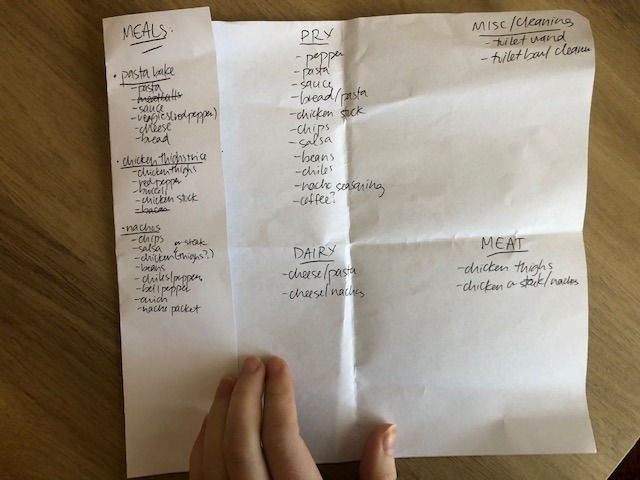 MEALS:
• pasta bake
- pasta
- meatballs
- sauce
- veggies (red pepper)
- cheese
- bread
• chicken thighs + rice
- chicken thighs
- red pepper
- chicken stock
- bacon
• nachos
- chips
- salsa or steak
- chicken (thighs?)
- beans
- chiles/peppers
- bell pepper
- onion
- nacho packet
PRY
- pepper
- pasta
- sauce
- bread/pasta
- chicken stock
- chips
- salsa
- beans
- chiles
- nacho seasoning
- coffee?
DAIRY
- cheese/pasta
- cheese/nachos
MISC/cleaning
- toilet wand
- toilet bowl cleaner
MEAT
- chicken thighs
- chicken or steak/nachos